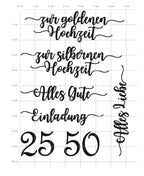 zur goldenen
Hochzeit
zur silbernen
Hochzeit
Alles Gute
Einladung
25 50
Alles Liebe